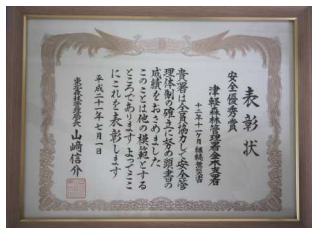 表彰状
安全優秀賞
津軽森林管理署金木支署
十二年十一ヶ月継続無災害
貴署は全員協力して安全管
理体制の確立に努め頭書の
成績をおさめました
このことは他の模範とする
ところでありますよってここ
にこれを表彰します
平成二十一年七月一日
東北森林管理局長
山崎信介